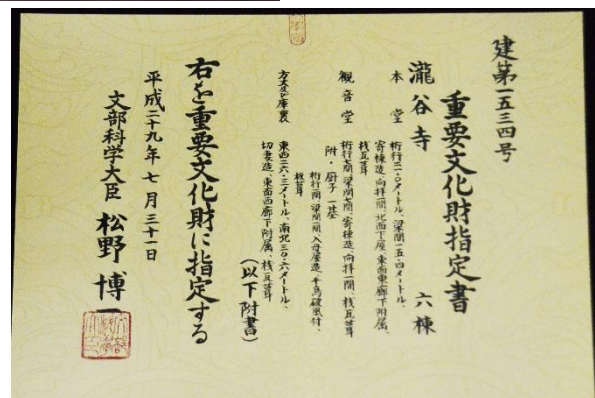 建第一五三四号
重要文化財指定書
瀧谷寺 六棟
本堂
桁行二一・〇メートル、梁間一五・四メートル、
寄棟造、向拝一間、北面下屋、東面東廊下附属、
桟瓦葺
観音堂
桁行七間、梁間七間、寄棟造、向拝一間、桟瓦葺
附・厨子 一基
桁行一間、梁間一間、入母屋造、千鳥破風付、
板葺
方丈及び庫裏
東西二六・三メートル、南北三〇・六メートル、
切妻造、東面西廊下附属、桟瓦葺
(以下附書)
右を重要文化財に指定する
平成二十九年七月三十一日
文部科学大臣 松野博一